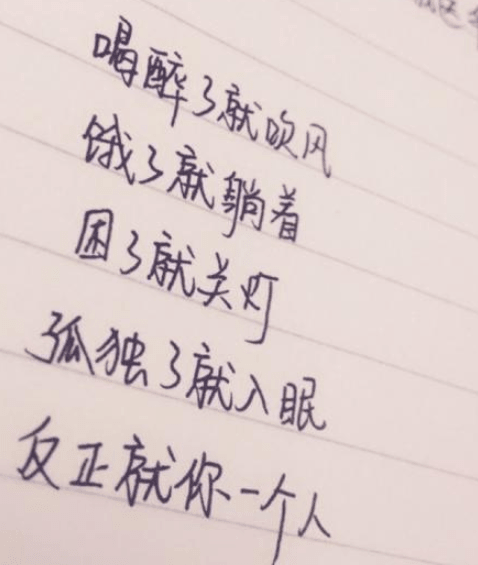 喝醉了就吹风
饿了就躺着
困了就关灯
孤独了就入眠
反正就你一个人